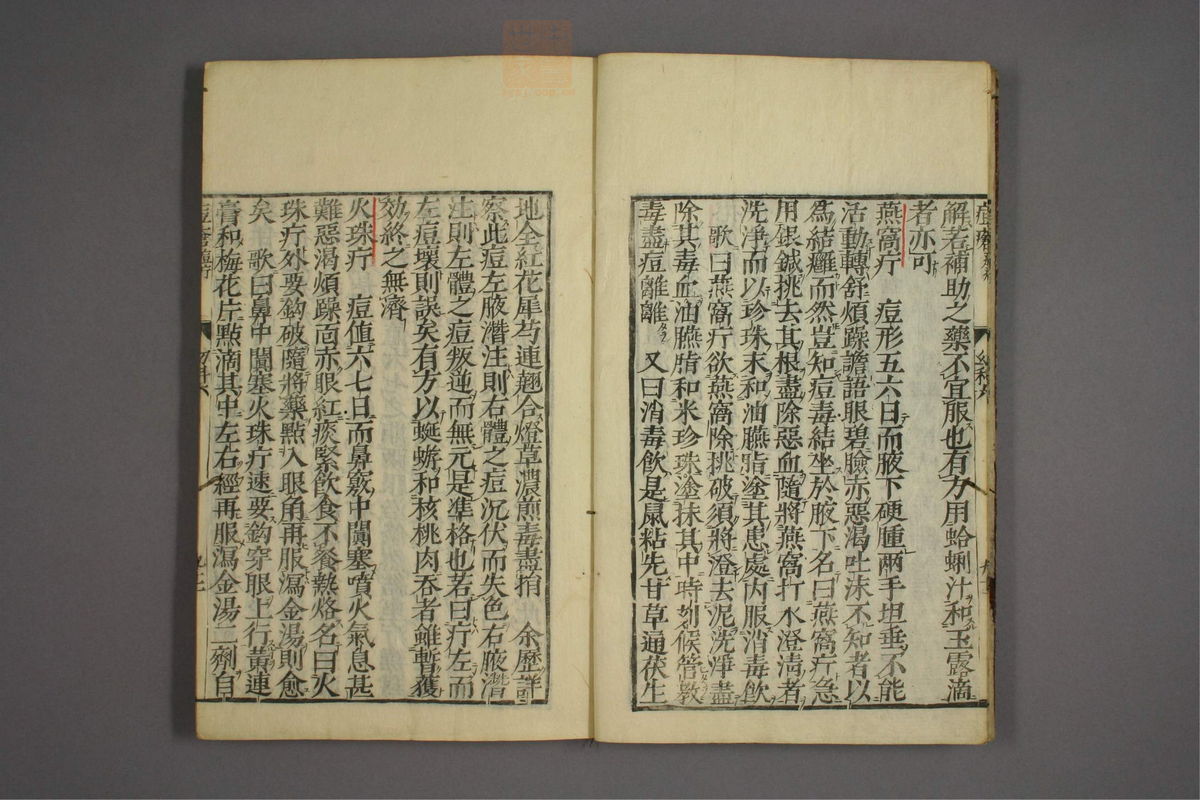 解若補助之藥不宜服也有方用蛤蜊汁和玉露滴
者亦可
燕窩疔　痘形五六日而腋下硬腫兩手坦垂不能
活動轉舒煩躁譫語眼碧臉赤惡渴吐沫不知者以
爲結癰而然豈知痘毒結坐於腋下名曰燕窩疔急
用銀鍼挑去其根盡除惡血隨將燕窩打水澄淸者
洗淨而以珍珠末和油臙脂塗其患處內服消毒飮
歌曰燕窩疔欲燕窩除挑破須將澄去泥洗淨盡
除其毒血油臙脂和米珍珠塗抹其中時刻候管敎
毒盡痘離離　又曰消毒飮是鼠粘先甘草通茯生
地全紅花犀芍連翹合燈草濃煎毒盡捐　余歷詳
察此痘左腋潛注則右體之痘沉伏而失色右腋潛
注則左體之痘叛逆而無元是準格也若曰疔左而
左痘壞則誤矣有方以蜒蚰和核桃肉吞者雖暫獲
効終之無濟
火珠疔　痘值六七日而鼻竅中闐塞噴火氣息甚
難惡渴煩躁面赤眼紅痰緊飮食不餐熱烙名曰火
珠疔外要鈎破隨將藥點入眼角再服瀉金湯則愈
矣　歌曰鼻中闐塞火珠疔速要鈎穿眼上行黃連
膏和梅花片點滴其中左右經再服瀉金湯二劑自